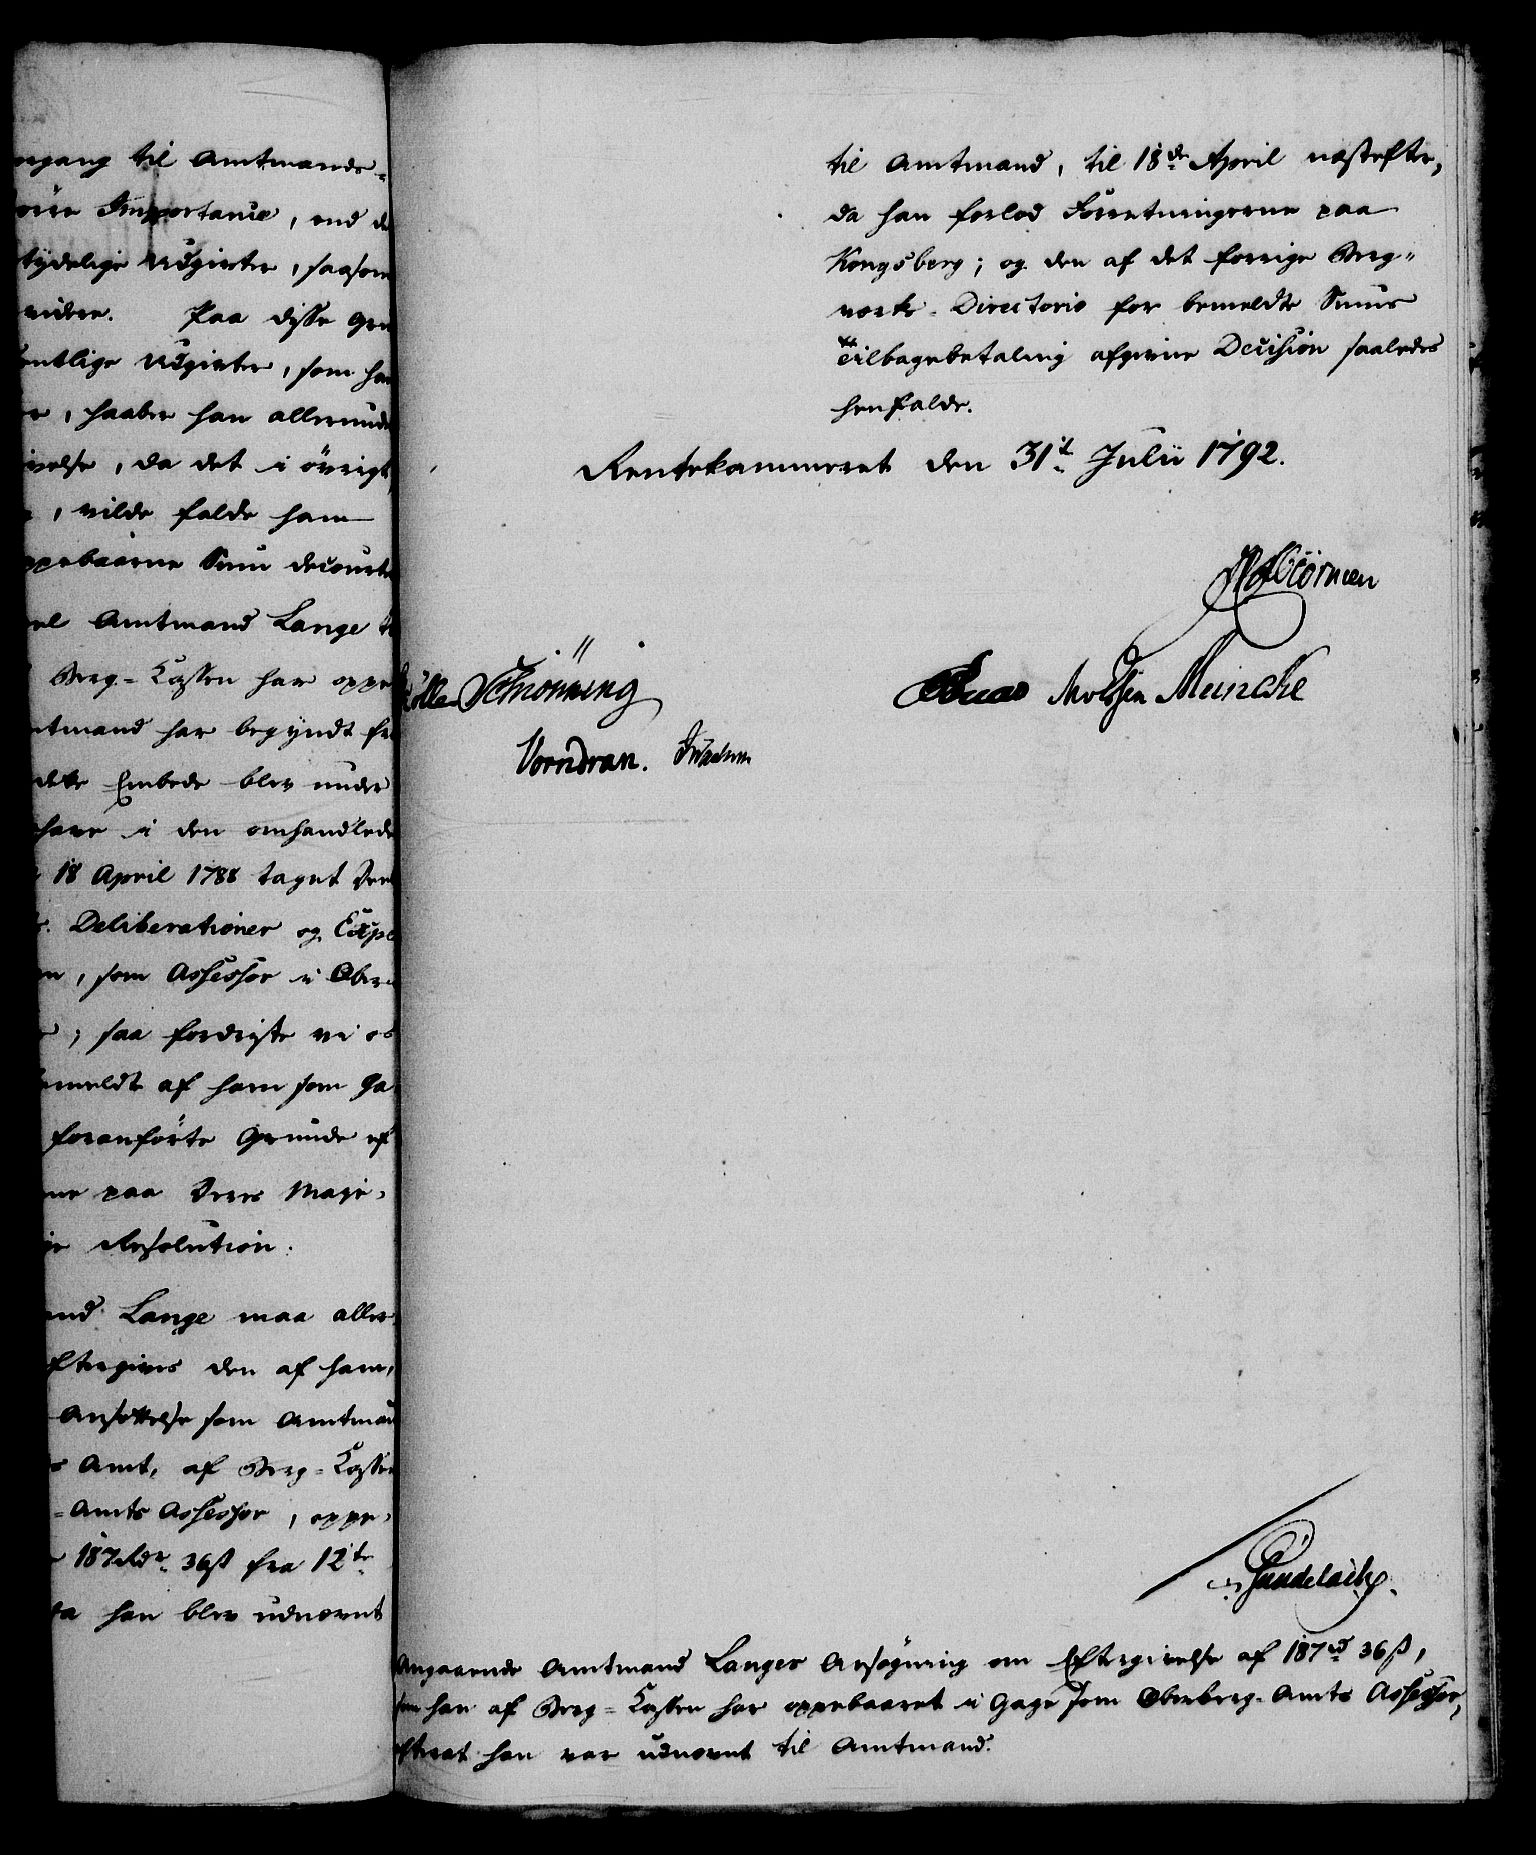 rgang til Amtmands-
örre Importance, end de
tydelige Udgivter, saasom
videre. Paa disse Gru
entlige Udgivter, som ha
r, haaber han allerunde
ivelse, da det i övrigt
, vilde falde ham
ppebaarne Sum decourte
el Amtmand Lange
Berg-Cassen har oppe
mtmand har begyndt fr
dette Embede blev under
have i den omhandlede
18 April 1788 taget Dee
Deliberationer og Expe
n, som Assessor i Ober-
; saa fordriste vi os
emeldte af ham som Ga
foranförte Grunde ef
ne paa Deres Maje-
ge Resolution.
and Lange maa aller
ftergives den af ham,
Ansættelse som Amtman
s Amt, af Berg-Casse
-Amts Assessor, oppe-
187 Rdr. 36 ß fra 12te
da han blev udnævnt
til Amtmand, til 18de April næstefter,
da han forlod Forretningerne paa
Kongsberg; og den af det forrige Berg-
værks-Directorio for bemeldte Sums
Tilbagebetaling afgivne Decision saaledes
henfalde.
Rentekammeret den 31te Julii 1792.
Schiönning
Meincke
Vorndran.
Gundelach.
Angaaende Amtmand Langes Ansögning om Eftergivelse af 187 rd 36 ß,
som han af Berg-Cassen har oppebaaret i Gage som Oberberg-Amts Assessor,
efterat han var udnævnt til Amtmand.